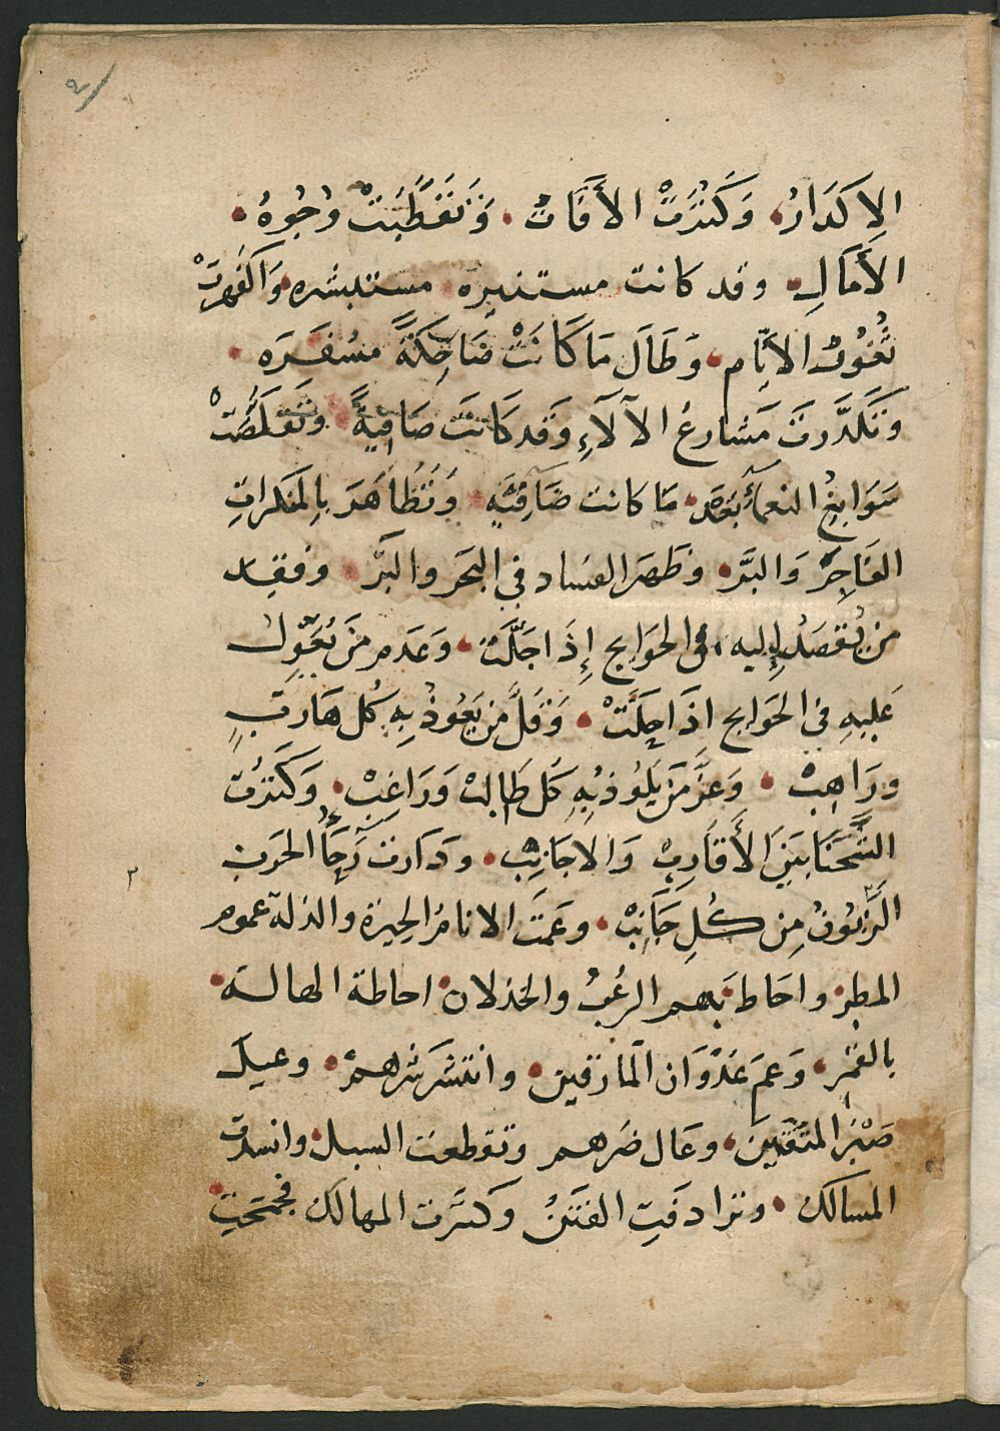 الاِكَدَارُ، وَكَثُرَتْ الأَفَاتُ . وَتَقَطَّبَتْ وُجُوهُ .
الأَمَالِ . وقد كانت مستنيره . مستبشره . وَاكفَهرتْ
ثُغُورُ الاَيَّام . وَطَالَ مَا كَانَتْ ضَاحِكَةً مسُفِرَه .
وَتَكَدَّرتَ مَشَارعُ الآلآءِ وَقدكَانَتَ صَافيةً . وتَقلَّصَتْ
سَوَابغُ النعمآءِ بَعَدَ . مَا كانت ضَافِيَه . وَتُظَاهَرَ بِالمنكراتِ
الفَاجِرُ وَالبَرَّ . وظَهَرَ الفساد في البَحَر والبَرّ . وفقد
من يُقصَدُ إِليه في الحوَايج إِذَ اجَلَّتَ . وَعَدمر مَنَ يُعَوَّلُ
عَليهِ في الحَوَايج اذَا حِلَتْ . وَقَلَّ مَن يَعُوذُ بِهِ كُل هَاربٍ
ورَاهِبْ . وَعَزَّ مَنَ يَلوُذ بُهِ كَل طَالبْ وَرَاغبْ . وَكَثرُت
الشَّحَنَا بَيَنَ الأَقَارِبْ وَالاجَانِبْ . ودَارتَ رَحَآُ الحَربِ
الزَّبوُنُ مِن كُلِ جَانِبْ . وعَمَتَ الانامَ الحِيرَة والذلة عموم
المطر . واحَاط بَهم الرعُبُ والخذلان احاطة الهالة .
بالقَمَر ، وَعَم عَدْوَان المَارقين . وانتشرَ شرهمْ . وعيل
صَبُر المتقين . وعَال ضرهم وتقطعت السبل . وانسدت
المسالك . وترادفَتِ الفتَنُ وكثرت المهالك فجمَحَتِ
٢